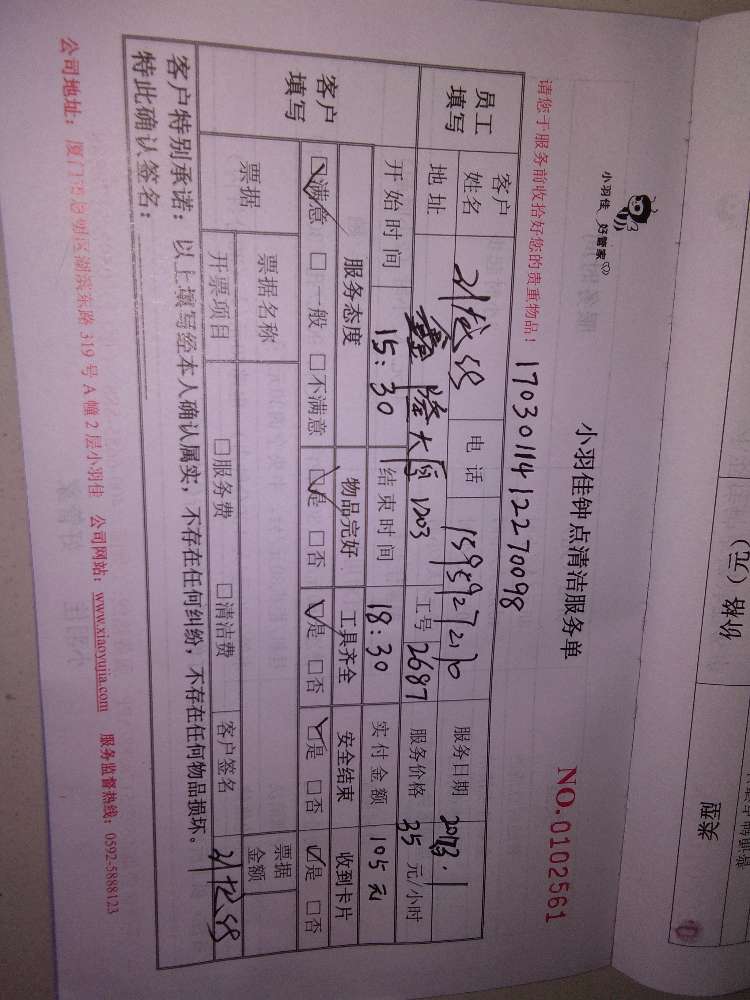 小羽佳 好管家
小羽佳钟点清洁服务单
请您于服务前收拾好您的贵重物品！
17030114122270098
NO.0102561
员工填写
客户姓名
电话
服务日期 2017.3.1
地址 鑫隆大厦1203
工号 2687
服务价格 35 元/小时
开始时间 15:30
结束时间 18:30
实付金额 105元
客户填写
服务态度 物品完好 工具齐全 安全结束 收到卡片
☑满意 □一般 □不满意 ☑是 □否 ☑是 □否 ☑是 □否 ☑是 □否
票据
票据名称
票据金额
开票项目 □服务费 □清洁费
客户签名
客户特别承诺：以上填写经本人确认属实，不存在任何纠纷，不存在任何物品损坏。
特此确认签名：
公司地址：厦门市思明区湖滨东路 319 号 A 幢 2 层小羽佳 公司网站：www.xiaoyujia.com 服务监督热线：0592-5888123
价格（元）